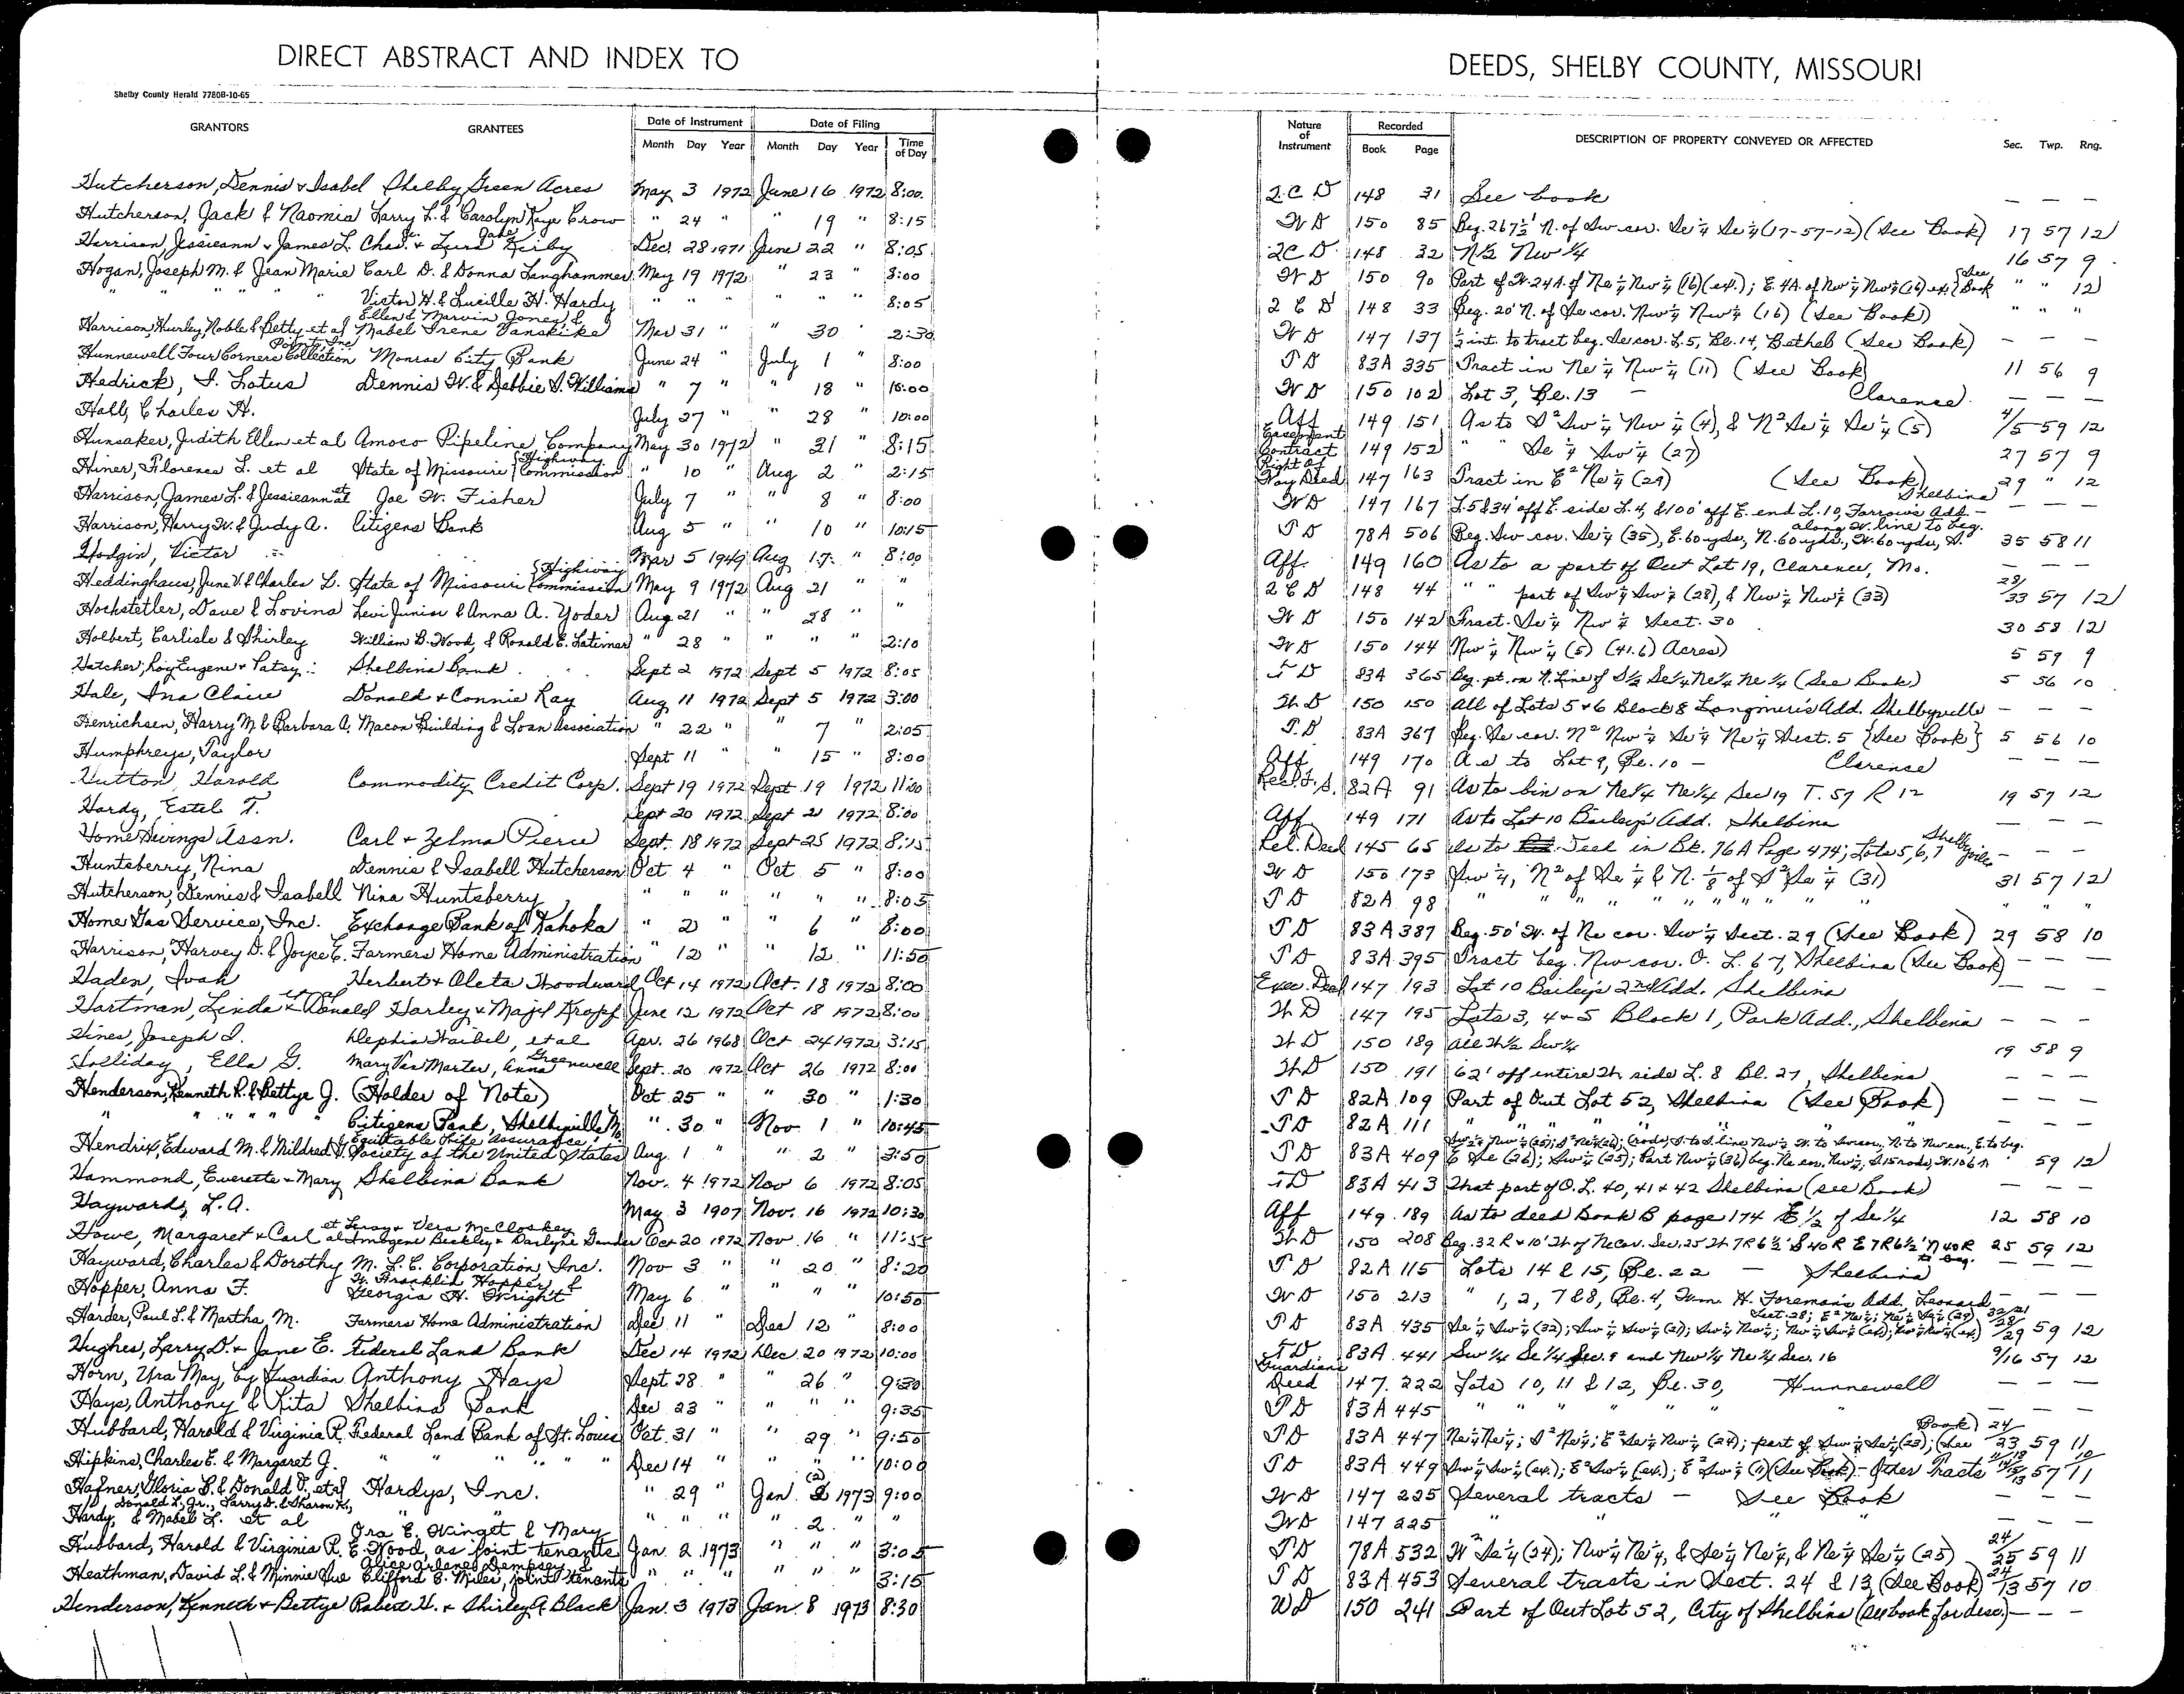 DIRECT ABSTRACT AND INDEX TO
Shelby County Herald 7780B-10-65
GRANTORS GRANTEES Date of Instrument Month Day Year Date of Filing Month Day Year Time of Day
Hutcherson, Dennis & Isabel Shelby Green Acres May 3 1972 June 16 1972 8:00
Hutcherson, Jack & Naomia Larry L. & Carolyn Kaye Crow " 24 " " 19 " 8:15
Harrison, Jessieann & James L. Chas. & Jane Kirby Dec. 28 1971 June 22 " 8:05
Hogan, Joseph M. & Jean Marie Carl D. & Donna Langhammer May 19 1972 " 23 " 8:00
" " " " " Victor H. & Lucille H. Hardy " " " " " " 8:05
Harrison, Hurley, Noble & Betty et al Ellen & Marvin Jones, & Mabel Irene Vanskike Mar 31 " " 30 " 2:30
Hunnewell Four Corners Collection Point, Inc. Monroe City Bank June 24 " July 1 " 8:00
Hedrick, I. Lotus Dennis W. & Debbie S. Williams " 7 " " 18 " 10:00
Hall, Charles H. July 27 " " 28 " 10:00
Hunsaker, Judith Ellen et al Amoco Pipeline Company May 30 1972 " 31 " 8:15
Hiner, Florence L. et al State of Missouri {Highway Commission " 10 " Aug 2 " 2:15
Harrison, James L. & Jessieann et al Joe W. Fisher July 7 " " 8 " 8:00
Harrison, Harry W. & Judy A. Citizens Bank Aug 5 " " 10 " 10:15
Hodgin, Victor Mar 5 1949 Aug 17 " 8:00
Heddinghaus, June V. & Charles L. State of Missouri {Highway Commission May 9 1972 Aug 21 " "
Hochstetler, Dave & Lovina Levi Junior & Anna A. Yoder Aug 21 " " 28 " "
Holbert, Carlisle & Shirley William B. Wood, & Ronald E. Latimer " 28 " " " " 2:10
Hatcher, Roy Eugene & Patsy Shelbina Bank Sept 2 1972 Sept 5 1972 8:05
Hale, Ina Claire Donald & Connie Ray Aug 11 1972 Sept 5 1972 3:00
Henrichsen, Harry M. & Barbara A. Macon Building & Loan Association " 22 " " 7 " 2:05
Humphreys, Taylor Sept 11 " " 15 " 8:00
Hutton, Harold Commodity Credit Corp. Sept 19 1972 Sept 19 1972 11:00
Hardy, Estel T. Sept 20 1972 Sept 21 1972 8:00
Home Savings Assn. Carl & Zelma Pierce Sept. 18 1972 Sept 25 1972 8:15
Huntsberry, Nina Dennis & Isabell Hutcherson Oct 4 " Oct 5 " 8:00
Hutcherson, Dennis & Isabell Nina Huntsberry " " " " " " 8:05
Home Gas Service, Inc. Exchange Bank of Kahoka " 2 " " 6 " 8:00
Harrison, Harvey D. & Joyce E. Farmers Home Administration " 12 " " 12 " 11:50
Haden, Ivah Herbert & Oleta Woodward Oct 14 1972 Oct. 18 1972 8:00
Hartman, Linda & Donald et al Harley & Majel Kropf June 12 1972 Oct 18 1972 8:00
Hines, Joseph D. Delphia Waibel, et al Apr. 26 1968 Oct 24 1972 3:15
Holliday, Ella G. Mary Van Marter, Anna Greenwell Sept. 20 1972 Oct 26 1972 8:00
Henderson, Kenneth R. & Bettye J. (Holder of Note) Oct 25 " " 30 " 1:30
" " " " " Citizens Bank, Shelbyville Mo " 30 " Nov. 1 " 10:45
Hendrix, Edward M. & Mildred V. Equitable Life Assurance Society of the United States Aug. 1 " " 2 " 3:50
Hammond, Everette & Mary Shelbina Bank Nov. 4 1972 Nov 6 1972 8:05
Hayward, L.A. May 3 1907 Nov. 16 1972 10:30
Howe, Margaret & Carl et al Leroy & Vera McCloskey Imogene Beckley & Darlyne Gander Oct 20 1972 Nov. 16 " 11:55
Hayward, Charles & Dorothy M. L. C. Corporation, Inc. Nov 3 " " 20 " 8:20
Hopper, Anna F. W. Franklin Hopper, & Georgia H. Wright May 6 " " " " 10:50
Harder, Paul L. & Martha M. Farmers Home Administration Dec 11 " Dec 12 " 8:00
Hughes, Larry D. & Jane E. Federal Land Bank Dec 14 1972 Dec. 20 1972 10:00
Horn, Ura May, by Guardian Anthony Hays Sept. 28 " " 26 " 9:30
Hays, Anthony & Rita Shelbina Bank Dec 23 " " " " 9:35
Hubbard, Harold & Virginia R. Federal Land Bank of St. Louis Oct. 31 " " 29 " 9:50
Hipkins, Charles E. & Margaret J. " " " " " Dec 14 " " " " 10:00
Hafner, Gloria B. & Donald T., et al Hardys, Inc. " 29 " Jan. 2 (2) 1973 9:00
Hardy, Donald L. Jr., Larry D. & Sharon K., & Mabel L. et al " " " " " 2 " "
Hubbard, Harold & Virginia R. Ora E. Winget & Mary E. Wood, as joint tenants Jan. 2 1973 " " " 3:05
Heathman, David L. & Minnie Sue Alice Arlene Dempsey & Clifford E. Miles, joint tenants " " " " " " 3:15
Henderson, Kenneth & Bettye Robert H. & Shirley A Black Jan. 3 1973 Jan. 8 1973 8:30
DEEDS, SHELBY COUNTY, MISSOURI
Nature of Instrument Recorded Book Page DESCRIPTION OF PROPERTY CONVEYED OR AFFECTED Sec. Twp. Rng.
Q.C.D 148 31 See book — — —
WD 150 85 Beg. 267½' N. of Sw cor. Se¼ Se¼ (17-57-12) (See Book) 17 57 12
QCD 148 32 N½ Nw ¼ 16 57 9
WD 150 90 Part of W. 24A. of Ne¼ Nw¼ (16)(ex.); E. 4A. of Nw¼ Nw¼ (16) ex. {See Book " " 12
QCD 148 33 Beg. 20' N. of Se cor. Nw¼ Nw¼ (16) (See Book) " " "
WD 147 137 ½ int. to tract beg. Se cor. L.5, Bl. 14, Bethel (See Book) — — —
TD 83A 335 Tract in Ne¼ Nw¼ (11) (See Book) 11 56 9
WD 150 102 Lot 3, Bl. 13 — Clarence — — —
Aff 149 151 As to S² Sw¼ Nw¼ (4), & N² Se¼ Se¼ (5) 4/5 59 12
Easement Contract 149 152 " " Se¼ Sw¼ (27) 27 57 9
Right of Way Deed 147 163 Tract in E² Ne¼ (29) (See Book) 29 " 12
WD 147 167 L.5 & 34' off E. side L.4, & 100' off E. end L.10, Farrow's Add. — Shelbina — — —
TD 78A 506 Beg. Sw cor. Se¼ (35), E. 60 yds, N. 60 yds., W. 60 yds, S. along W. line to beg. 35 58 11
Aff. 149 160 As to a part of Out Lot 19, Clarence, Mo. — — —
QCD 148 44 " " part of Sw¼ Sw¼ (28), & Nw¼ Nw¼ (33) 28/33 57 12
WD 150 142 Tract. Se¼ Nw¼ Sect. 30 30 58 12
WD 150 144 Nw¼ Nw¼ (5) (41.6) Acres) 5 59 9
TD 83A 365 Beg. pt. on N. Line of S½ Se¼ Ne¼ Ne¼ (See Book) 5 56 10
WD 150 150 All of Lots 5 & 6 Block 8 Longmire's Add. Shelbyville — — —
T.D 83A 367 Beg. Se cor. N² Nw¼ Se¼ Ne¼ Sect. 5 {See Book} 5 56 10
Aff 149 170 As to Lot 9, Bl. 10 — Clarence — — —
Rel. F.S. 82A 91 As to bin on Ne¼ Ne¼ Sec 19 T. 57 R 12 19 57 12
Aff 149 171 As to Lot 10 Bailey's Add. Shelbina — — —
Rel. Deed 145 65 As to Deed in Bk. 76A Page 474; Lots 5, 6, 7 Shelbyville — — —
WD 150 173 Sw¼, N² of Se¼ & N. ⅛ of S² Se¼ (31) 31 57 12
TD 82A 98 " " " " " " " " " " " "
TD 83A 387 Beg. 50' W. of Ne cor. Sw¼ Sect. 29 (See Book) 29 58 10
TD 83A 395 Tract beg. Nw cor. O. L. 67, Shelbina (See Book) — — —
Exec. Deed 147 193 Lot 10 Bailey's 2nd Add. Shelbina — — —
WD 147 195 Lots 3, 4 & 5 Block 1, Park Add., Shelbina — — —
WD 150 189 All W½ Sw¼ 19 58 9
WD 150 191 62' off entire W side L. 8 Bl. 27, Shelbina — — —
TD 82A 109 Part of Out Lot 52, Shelbina (See Book) — — —
TD 82A 111 " " " " " " — — —
TD 83A 409 E Se (26); Sw¼ (25); Part Nw¼ (36) beg. Ne cor. Nw¼, S. 15 rods, W. 106 59 12
TD 83A 413 That part of O.L. 40, 41 & 42 Shelbina (see Book) — — —
Aff 149 189 As to deed Book B page 174 E½ of Se¼ 12 58 10
WD 150 208 Beg. 32 R & 10' W of Ne Cor. Sec. 25 W 7R 6½' S 40R E 7R 6½' N 40R to beg. 25 59 12
TD 82A 115 Lots 14 & 15, Bl. 22 — Shelbina — — —
WD 150 213 " 1, 2, 7 & 8, Bl. 4, Wm. H. Foreman's Add. Leonard — — —
TD 83A 435 Se¼ Sw¼ (32); Sw¼ Sw¼ (21); Sw¼ Nw¼; Nw¼ Sw¼ 59 12
TD 83A 441 Sw¼ Se¼ Sec. 9 and Nw¼ Ne¼ Sec. 16 9/16 57 12
Guardians Deed 147 222 Lots 10, 11 & 12, Bl. 30, Hunnewell — — —
TD 83A 445 " " " " " " — — —
TD 83A 447 Ne¼ Ne¼; S² Ne¼; E² Se¼ Nw¼ (24); part of Sw¼ Se¼ (23); (See Book) 24/23 59 11
TD 83A 449 Sw¼ Sw¼ (ex.); E² Sw¼ (ex.); E² Sw¼ (11) (See Book) - Other Tracts 57 11
WD 147 225 Several tracts — See Book — — —
WD 147 225 " " " — — —
TD 78A 532 W² Se¼ (24); Nw¼ Ne¼, & Se¼ Ne¼, & Ne¼ Se¼ (25) 24/25 59 11
TD 83A 453 Several tracts in Sect. 24 & 13 (See Book) 24/13 57 10
WD 150 241 Part of Out Lot 52, City of Shelbina (see book for desc.) — — —